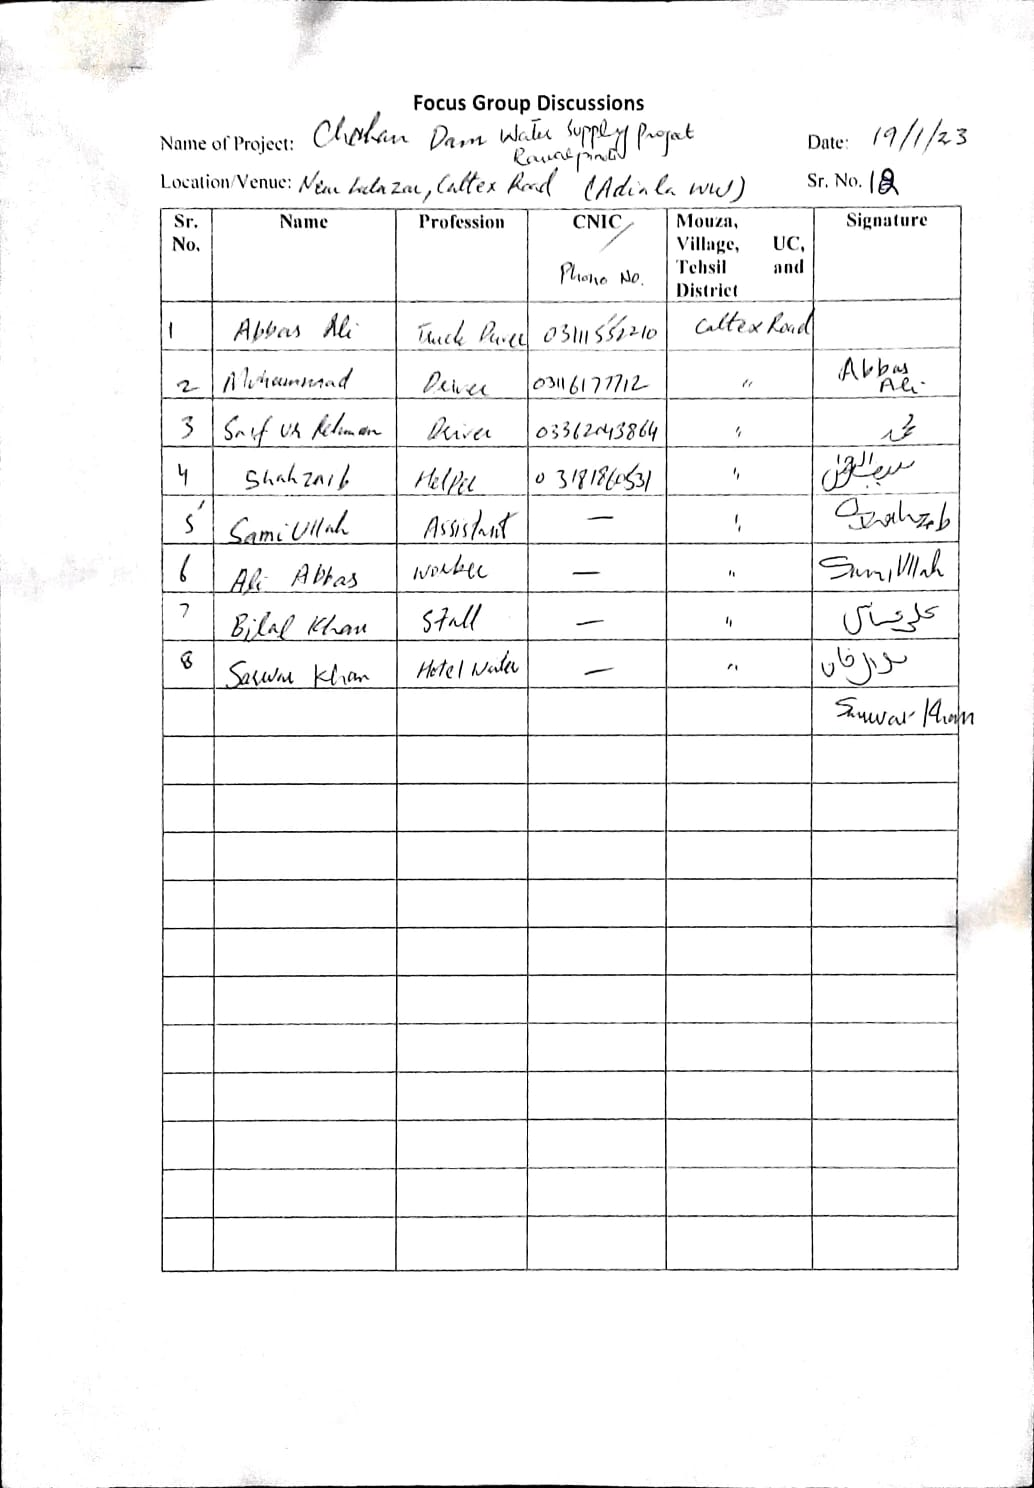 Focus Group Discussions
Name of Project: Chahan Dam Water Supply Project Date: 19/1/23
Rawalpindi
Location/Venue: New Lalazar, Caltex Road (Adiala WW) Sr. No. 12
Sr. No. Name Profession CNIC/ Phone No. Mouza, Village, UC, Tehsil and District Signature
1 Abbas Ali Truck Driver Caltex Road
2 Mohammad Driver 03116177712 " Abbas Ali
3 Saif Ur Rehman Driver 03362043864 " محمد
4 Shahzaib Helper " سیف الرحمن
5 Sami Ullah Assistant — " Shahzeb
6 Ali Abbas Worker — " Sami Ullah
7 Bilal Khan Stall — " علی عباس
8 Sarwar Khan Hotel Waiter — " بلال خان
Sarwar Khan